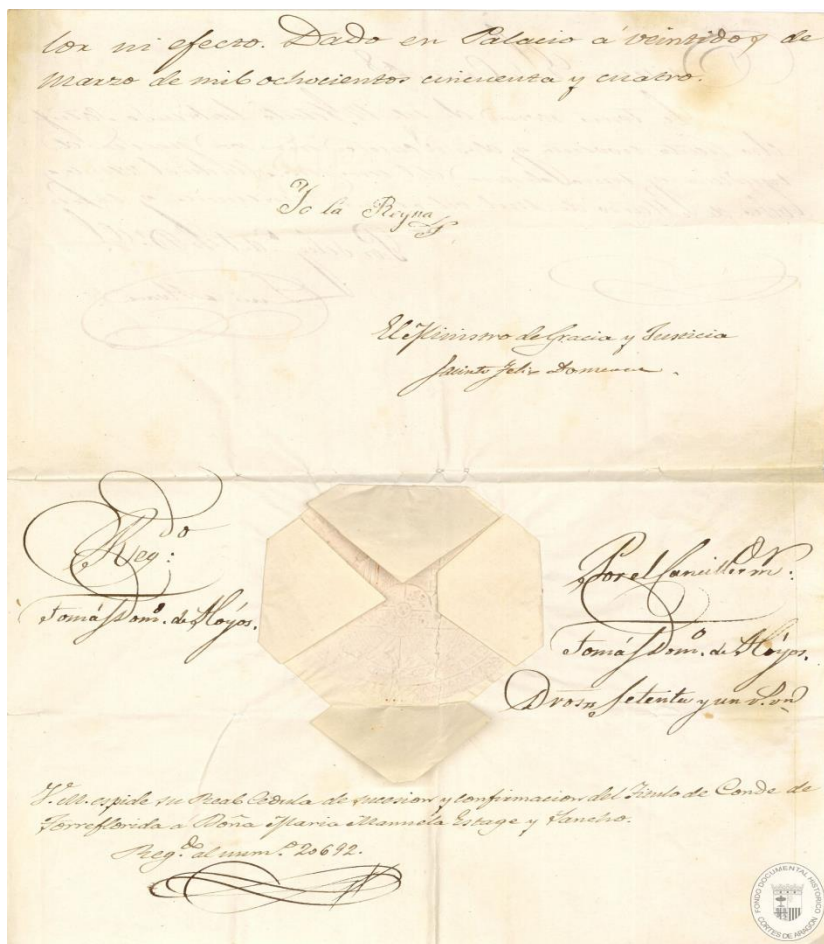 lor ni efecto. Dado en Palacio á veintidos de
Marzo de mil ochocientos cincuenta y cuatro.
Yo la Reyna
El Ministro de Gracia y Justicia
Jacinto Felix Domenech.
Reg.do:
Tomás Dom.o de Hoyos.
Por el Canciller m.r:
Tomás Dom.o de Hoyos.
Dros setenta y un r. on
V.M. espide su Real Cédula de sucesion y confirmacion del Titulo de Conde de
Torreflorida á Doña Maria Manuela Estage y Sancho.
Reg.do al num.o 20692.
FONDO DOCUMENTAL HISTÓRICO
CORTES DE ARAGÓN